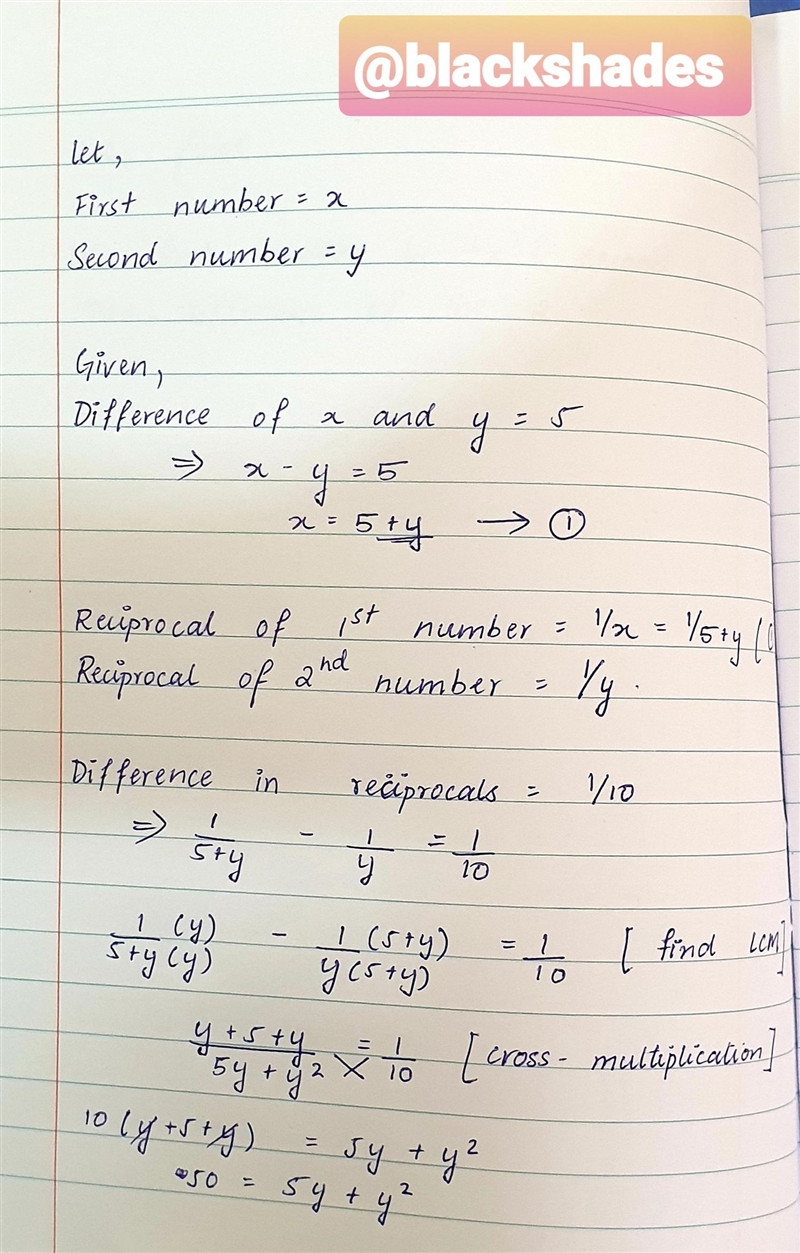 @blackshades
let,
First number = x
Second number = y
Given,
Difference of x and y = 5
⇒ x - y = 5
x = 5 + y → ①
Reciprocal of 1st number = 1/x = 1/5+y (
Reciprocal of 2nd number = 1/y .
Difference in reciprocals = 1/10
⇒ 1/5+y - 1/y = 1/10
1 (y)/5+y (y) - 1 (5+y)/y (5+y) = 1/10 [ find LCM]
y + 5 + y/5y + y² = 1/10 [cross - multiplication]
10 (y + 5 + y) = 5y + y²
50 = 5y + y²